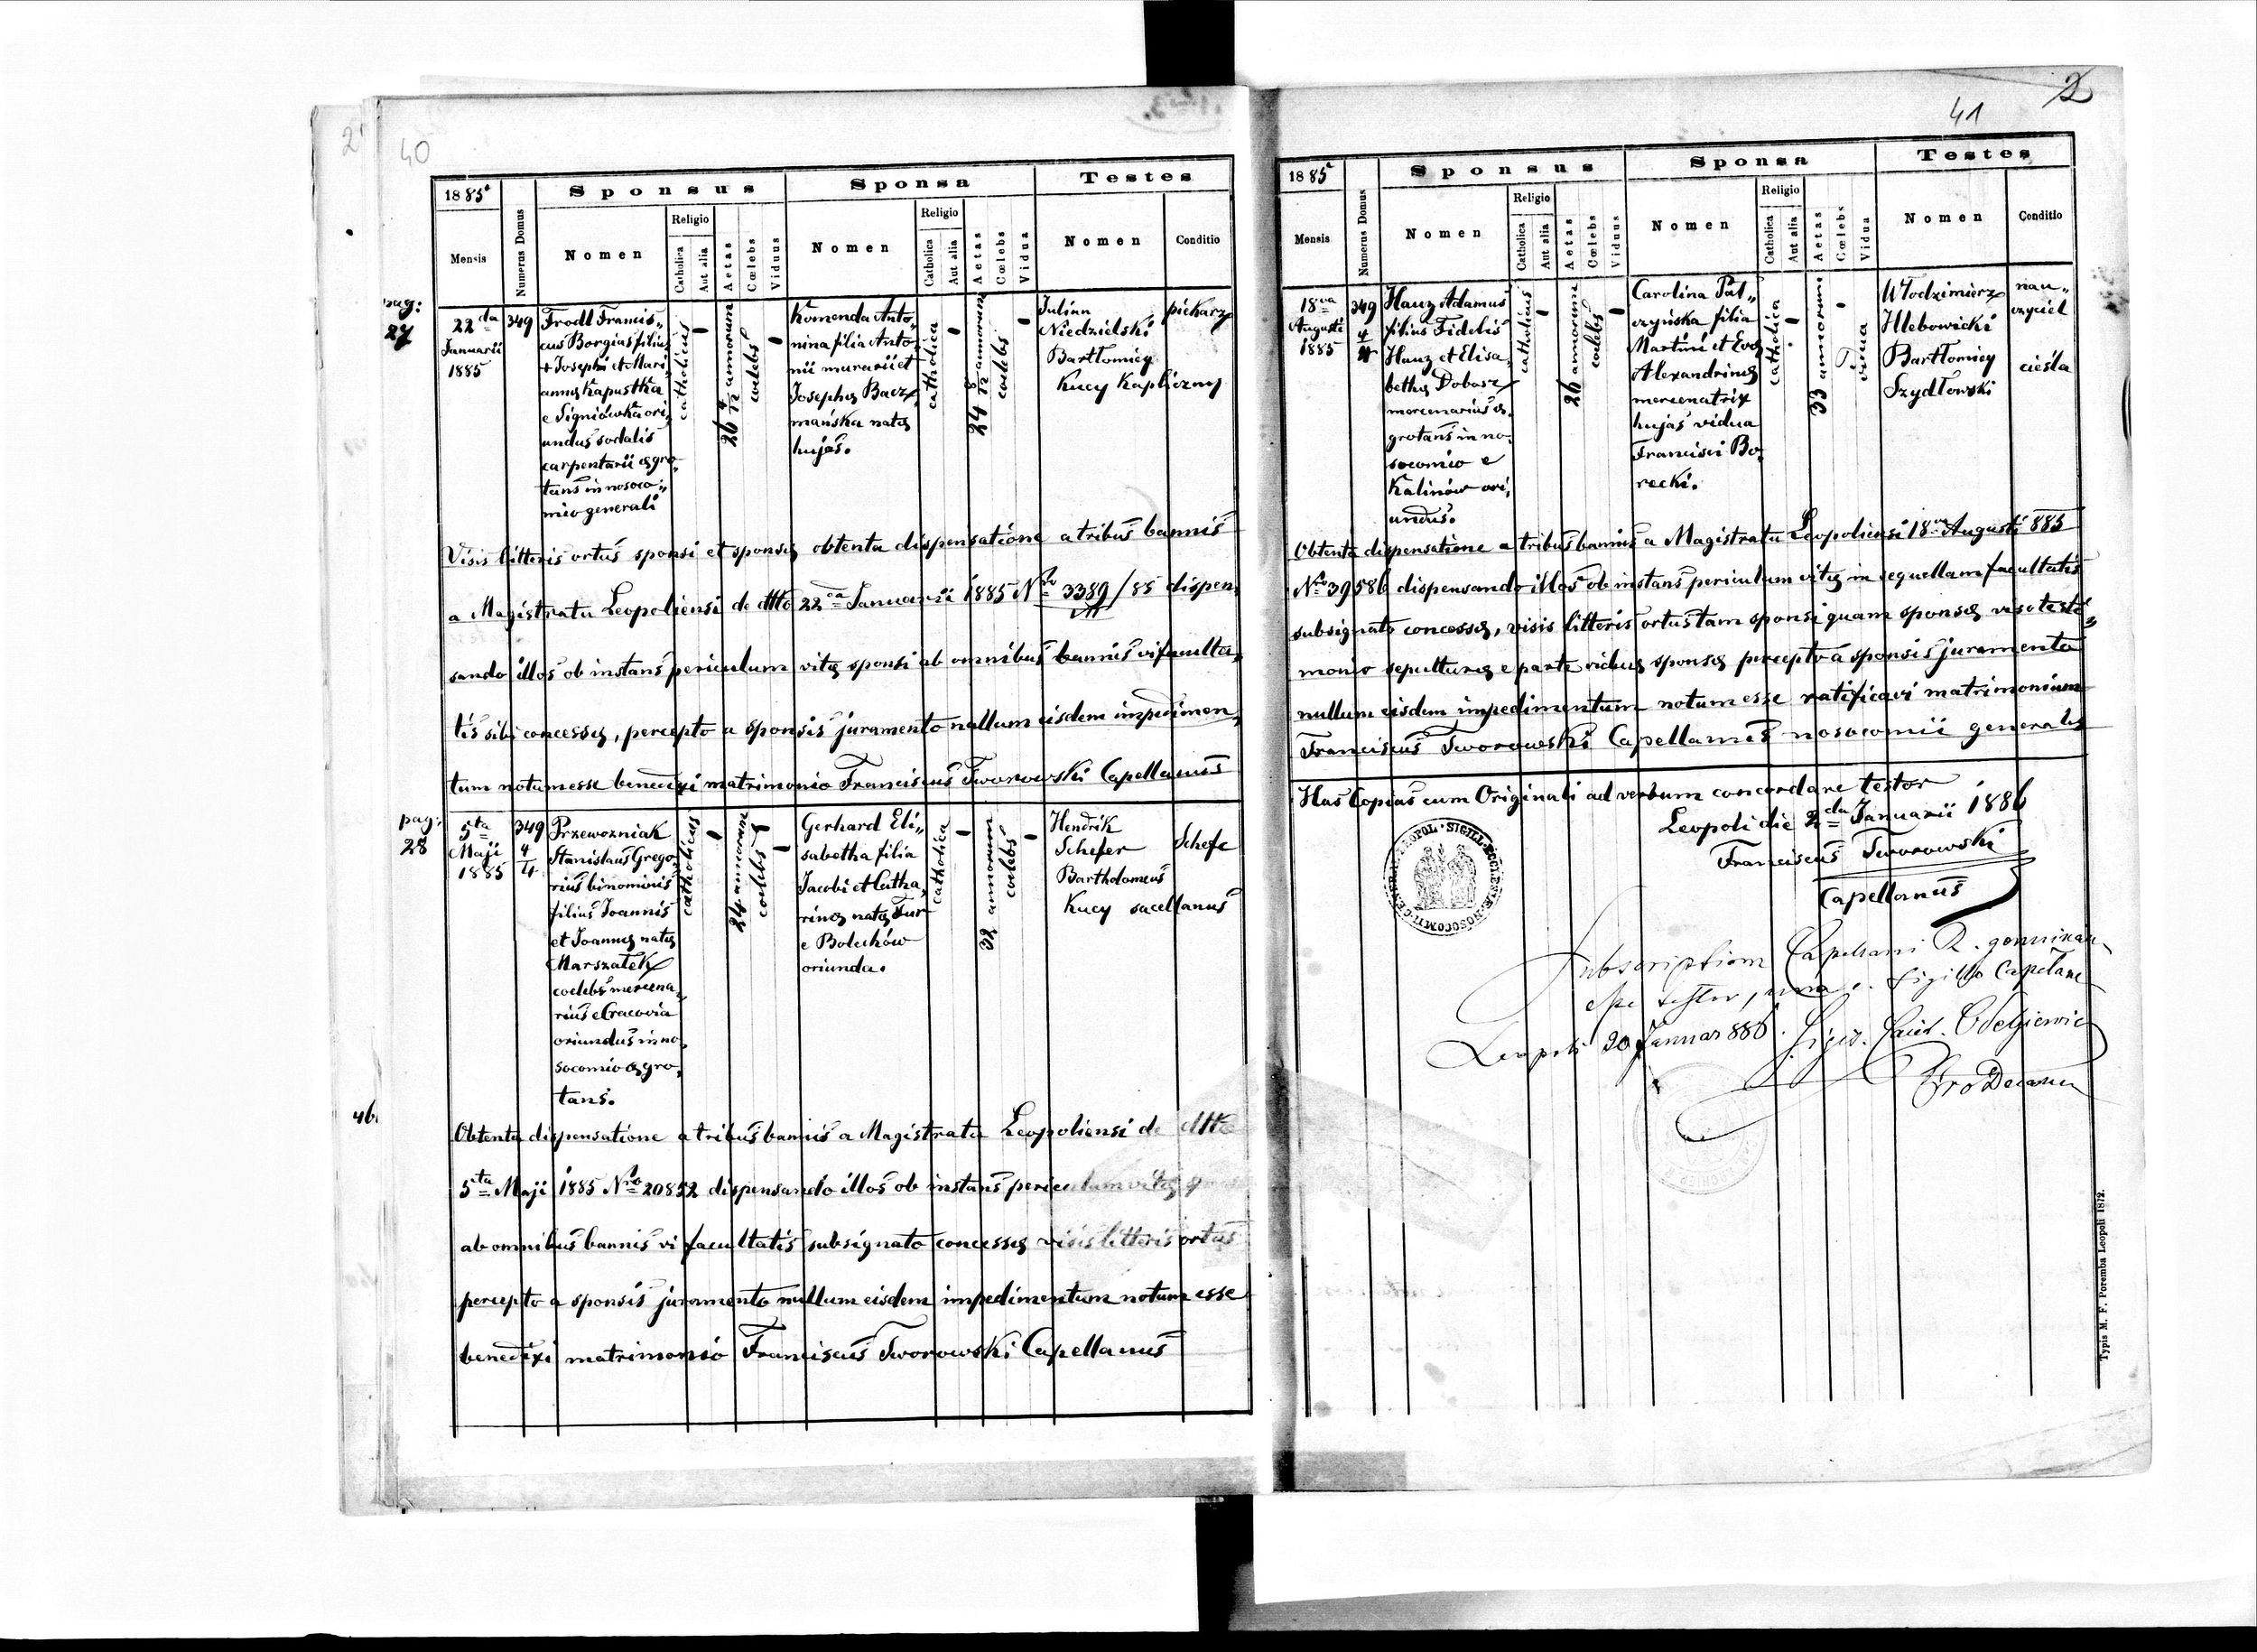 40
1885
Mensis
Numerus Domus
Sponsus
Nomen
Religio
Catholica
Aut alia
Aetas
Cœlebs
Viduus
Sponsa
Nomen
Religio
Catholica
Aut alia
Aetas
Cœlebs
Vidua
Testes
Nomen
Conditio
pag:
27
22da
Januarii
1885
349
Frodl Francis„
cus Borgias filius
+ Josephi et Mari
annæ Kapustka
e Signiówka ori„
undus sodalis
carpentarii ægro„
tans in nosoco„
mio generali
catholicus
26 4/12 annorum
coelebs
Komenda Anto„
nina filia Anto„
nii murarii et
Josephæ Bacz„
mańska natæ
hujas.
catholica
24 8/12 annorum
coelebs
Julian
Niedzielski
piekarz
Bartłomiej
Kucy Kapliczny
Visis litteris ortus sponsi et sponsæ obtenta dispensatione a tribus bannis
a Magistratu Leopoliensi de dtto 22da Januarii 1885 Nro 3389/85 dispen„
sando illos ob instans periculum vitæ sponsi ab omnibus bannis vi faculta„
tis sibi concessæ, percepto a sponsis juramento nullum eisdem impedimen„
tum notum esse benedixi matrimonio Franciscus Tworowski Capellanus
pag:
28
5ta
Maji
1885
349
4/4
Przewozniak
Stanislaus Grego„
rius binominis
filius Joannis
et Joannæ natæ
Marszałek
coelebs mercena„
rius e Cracovia
oriundus in no„
socomio ægro„
tans.
catholicus
24 annorum
coelebs
Gerhard Eli„
sabetha filia
Jacobi et Catha„
rinæ natæ Fur
e Bolechów
oriunda.
catholica
32 annorum
coelebs
Hendrik
Schefer
Schefe
Bartholomeus
Kucy sacellanus
Obtenta dispensatione a tribus bannis a Magistratu Leopoliensi de dtto
5ta Maji 1885 Nro 20852 dispensando illos ob instans periculum vitæ
ab omnibus bannis vi facultatis subsignato concessæ visis litteris ortus
percepto a sponsis juramento nullum eisdem impedimentum notum esse
benedixi matrimonio Franciscus Tworowski Capellanus
2
41
1885
Mensis
Numerus Domus
Sponsus
Nomen
Religio
Catholica
Aut alia
Aetas
Cœlebs
Viduus
Sponsa
Nomen
Religio
Catholica
Aut alia
Aetas
Cœlebs
Vidua
Testes
Nomen
Conditio
18va
Augusti
1885
349
4
Hanz Adamus
filius Fidelis
Hanz et Elisa„
bethæ Dobosz
mercenarius æ„
grotans in no„
socomio e
Kalinów ori„
undus.
catholicus
26 annorum
coelebs
Carolina Pał„
czyńska filia
Martini et Evæ
Alexandrinæ
mercenatrix
hujas vidua
Francisci Bo„
recki.
catholica
33 annorum
vidua
Włodzimierz
Hlebowicki
nau„
czyciel
Bartłomiej
Szydłowski
cieśla
Obtenta dispensatione a tribus bannis a Magistratu Leopoliensi 18va Augusti 885
Nro 39586 dispensando illos ob instans periculum vitæ in sequellam facultatis
subsignato concessæ, visis litteris ortus tam sponsi quam sponsæ viso testi„
monio sepulturæ e parte viduæ sponsæ percepto a sponsis juramento
nullum eisdem impedimentum notum esse ratificavi matrimonium
Franciscus Tworowski Capellanus nosocomii generalis
Has Copias cum Originali ad verbum concordare testor
Leopoli die 2da Januarii 1886
Franciscus Tworowski
Capellanus
Subscriptionem Capellani
esse testor, una c. sigillo
Leopoli 20 Januar 886.
ProDecanus
Typis M. F. Poremba Leopoli 1872.